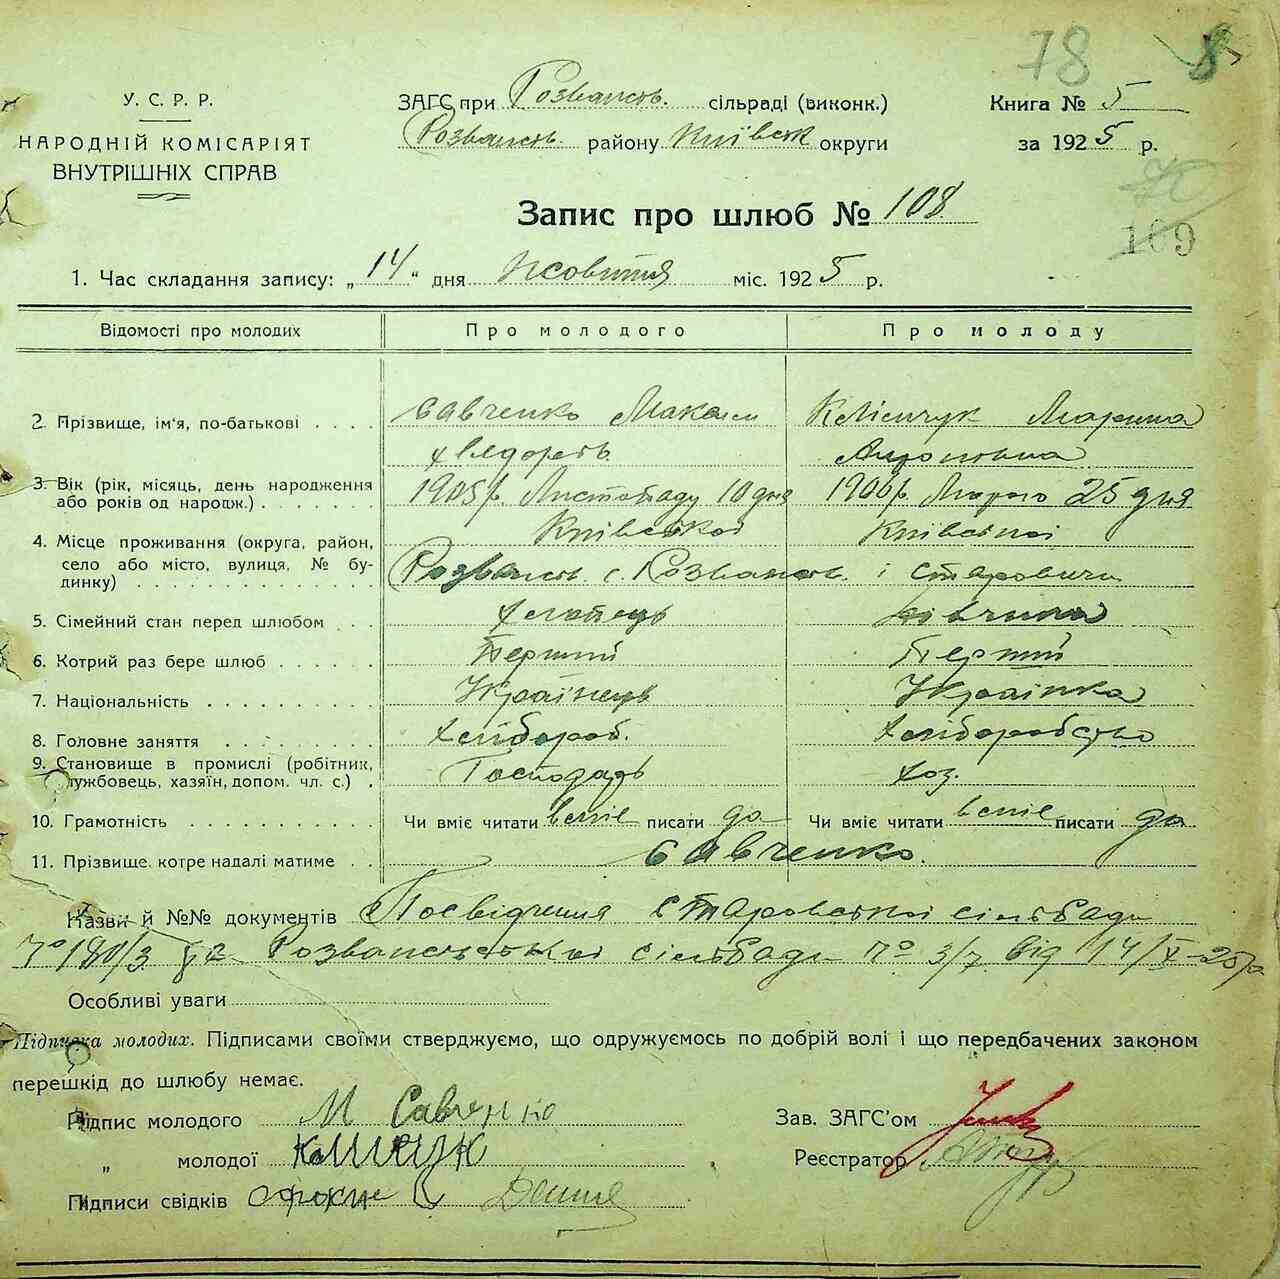 78 8
У. С. Р. Р.
НАРОДНІЙ КОМІСАРІЯТ
ВНУТРІШНІХ СПРАВ
ЗАГС при Розважств. сільраді (виконк.)
Розважств. району Київськ округи
Книга № 5
за 1925 р.
70
109
Запис про шлюб № 108
1. Час складання запису: „14" дня Жовтня міс. 1925 р.
Відомості про молодих Про молодого Про молоду
2. Прізвище, ім'я, по-батькові Савченко Максим Клімчук Марина
Антоновна
3. Вік (рік, місяць, день народження або років од народж.) 1905 р. Листопаду 10 дня 1906 р. Лютого 25 дня
4. Місце проживання (округа, район, село або місто, вулиця, № будинку) Київської Київської
Розважств. с. Розважств. і Старовичи
5. Сімейний стан перед шлюбом хлопець дівчина
6. Котрий раз бере шлюб Перший Перший
7. Національність Українець Українка
8. Головне заняття хлібороб. хліборобство
9. Становище в промислі (робітник, службовець, хазяїн, допом. чл. с.) Господарь хоз.
10. Грамотність Чи вміє читати вміє писати да Чи вміє читати вміє писати да
11. Прізвище, котре надалі матиме Савченко.
Назви й №№ документів Посвідчення Старовської сільради
№ 190/3 сільради № 3/7 від 14/X-25 р
Особливі уваги
Підписка молодих. Підписами своїми стверджуємо, що одружуємось по добрій волі і що передбачених законом
перешкід до шлюбу немає.
Підпис молодого М Савченко
„ молодої
Підписи свідків
Зав. ЗАГС'ом
Реєстратор